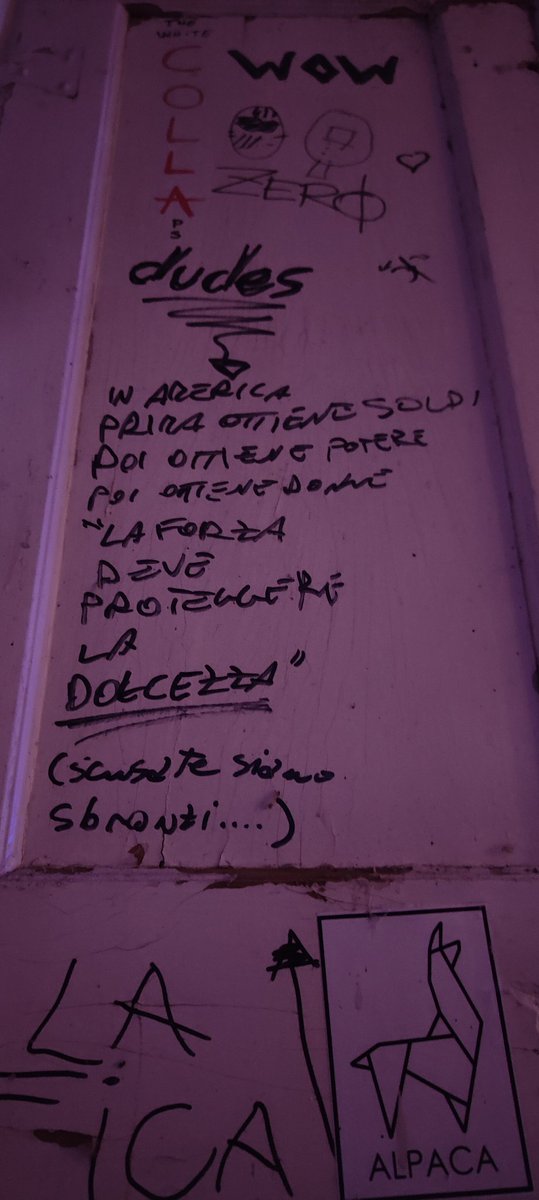 THE
WHITE
COLLA
PS
WOW
ZERO
dudes
W AMERICA
PRIMA OTTIENE SOLDI
POI OTTIENE POTERE
POI OTTIENE DONNE
"LA FORZA
DEVE
PROTEGGERE
LA
DOLCEZZA"
(scusate siamo
sbronzi....)
LA
ICA
ALPACA